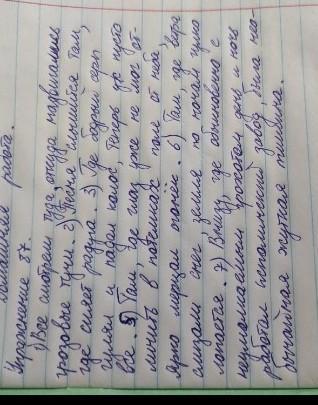 Домашняя работа.
Упражнение 87.
1) Все смотрели туда, откуда надвигались
грозовые тучи. 2) Песня слышится там,
где сияет радуга. 3) Где бодрый серп
гулял и падал колос, теперь уж пусто
все. 5) Там, где глаз уже не мог от-
личить в потемках поле от неба,
ярко мерцал огонёк. 6) Там, где вчера
слизали снег, земля по ночам гулко
лопается. 7) Внизу, где обыкновенно с
неумолкаемым рокотом день и ночь
работал исполинский завод, была необ-
ычайная жуткая тишина.